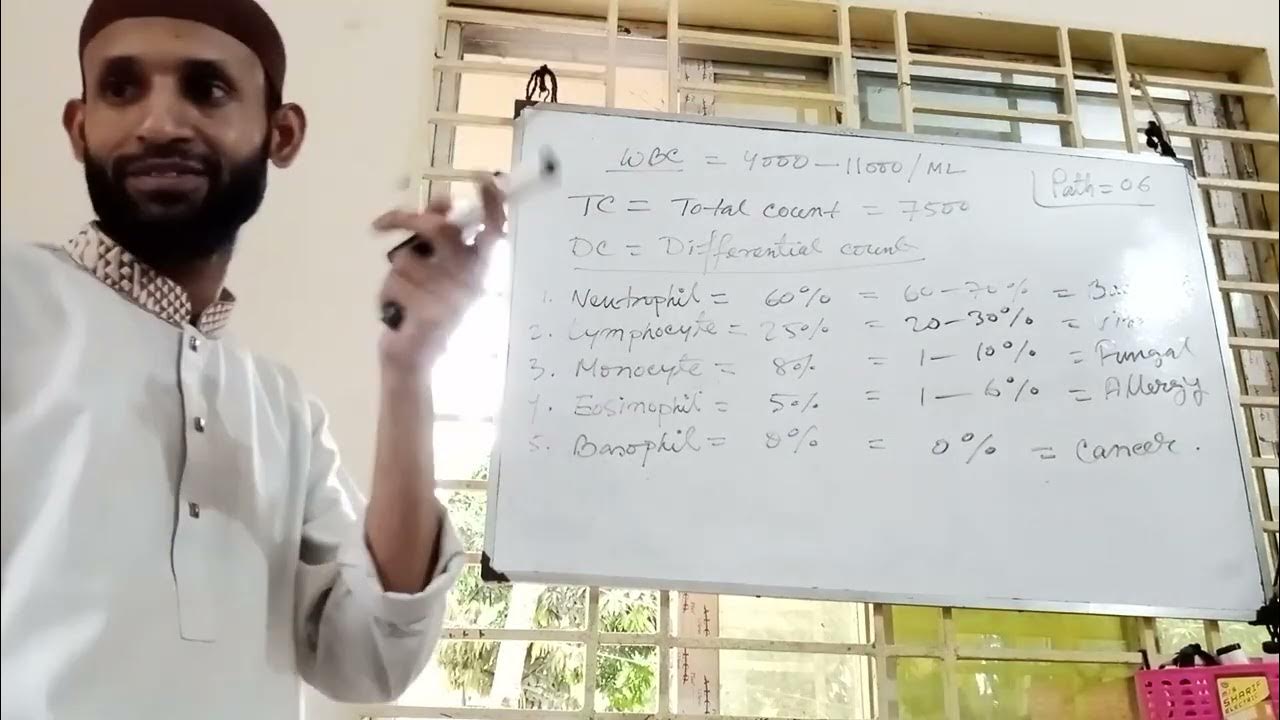 WBC = 4000 – 11000/ML
Path = 06
TC = Total count = 7500
DC = Differential count
1. Neutrophil = 60% = 60–70% =
2. Lymphocyte = 25% = 20–30% =
3. Monocyte = 8% = 1 – 10% = Fungal
4. Eosinophil = 5% = 1 – 6% = Allergy
5. Basophil = 0% = 0% = Cancer.
SHARIF
ELECTRIC